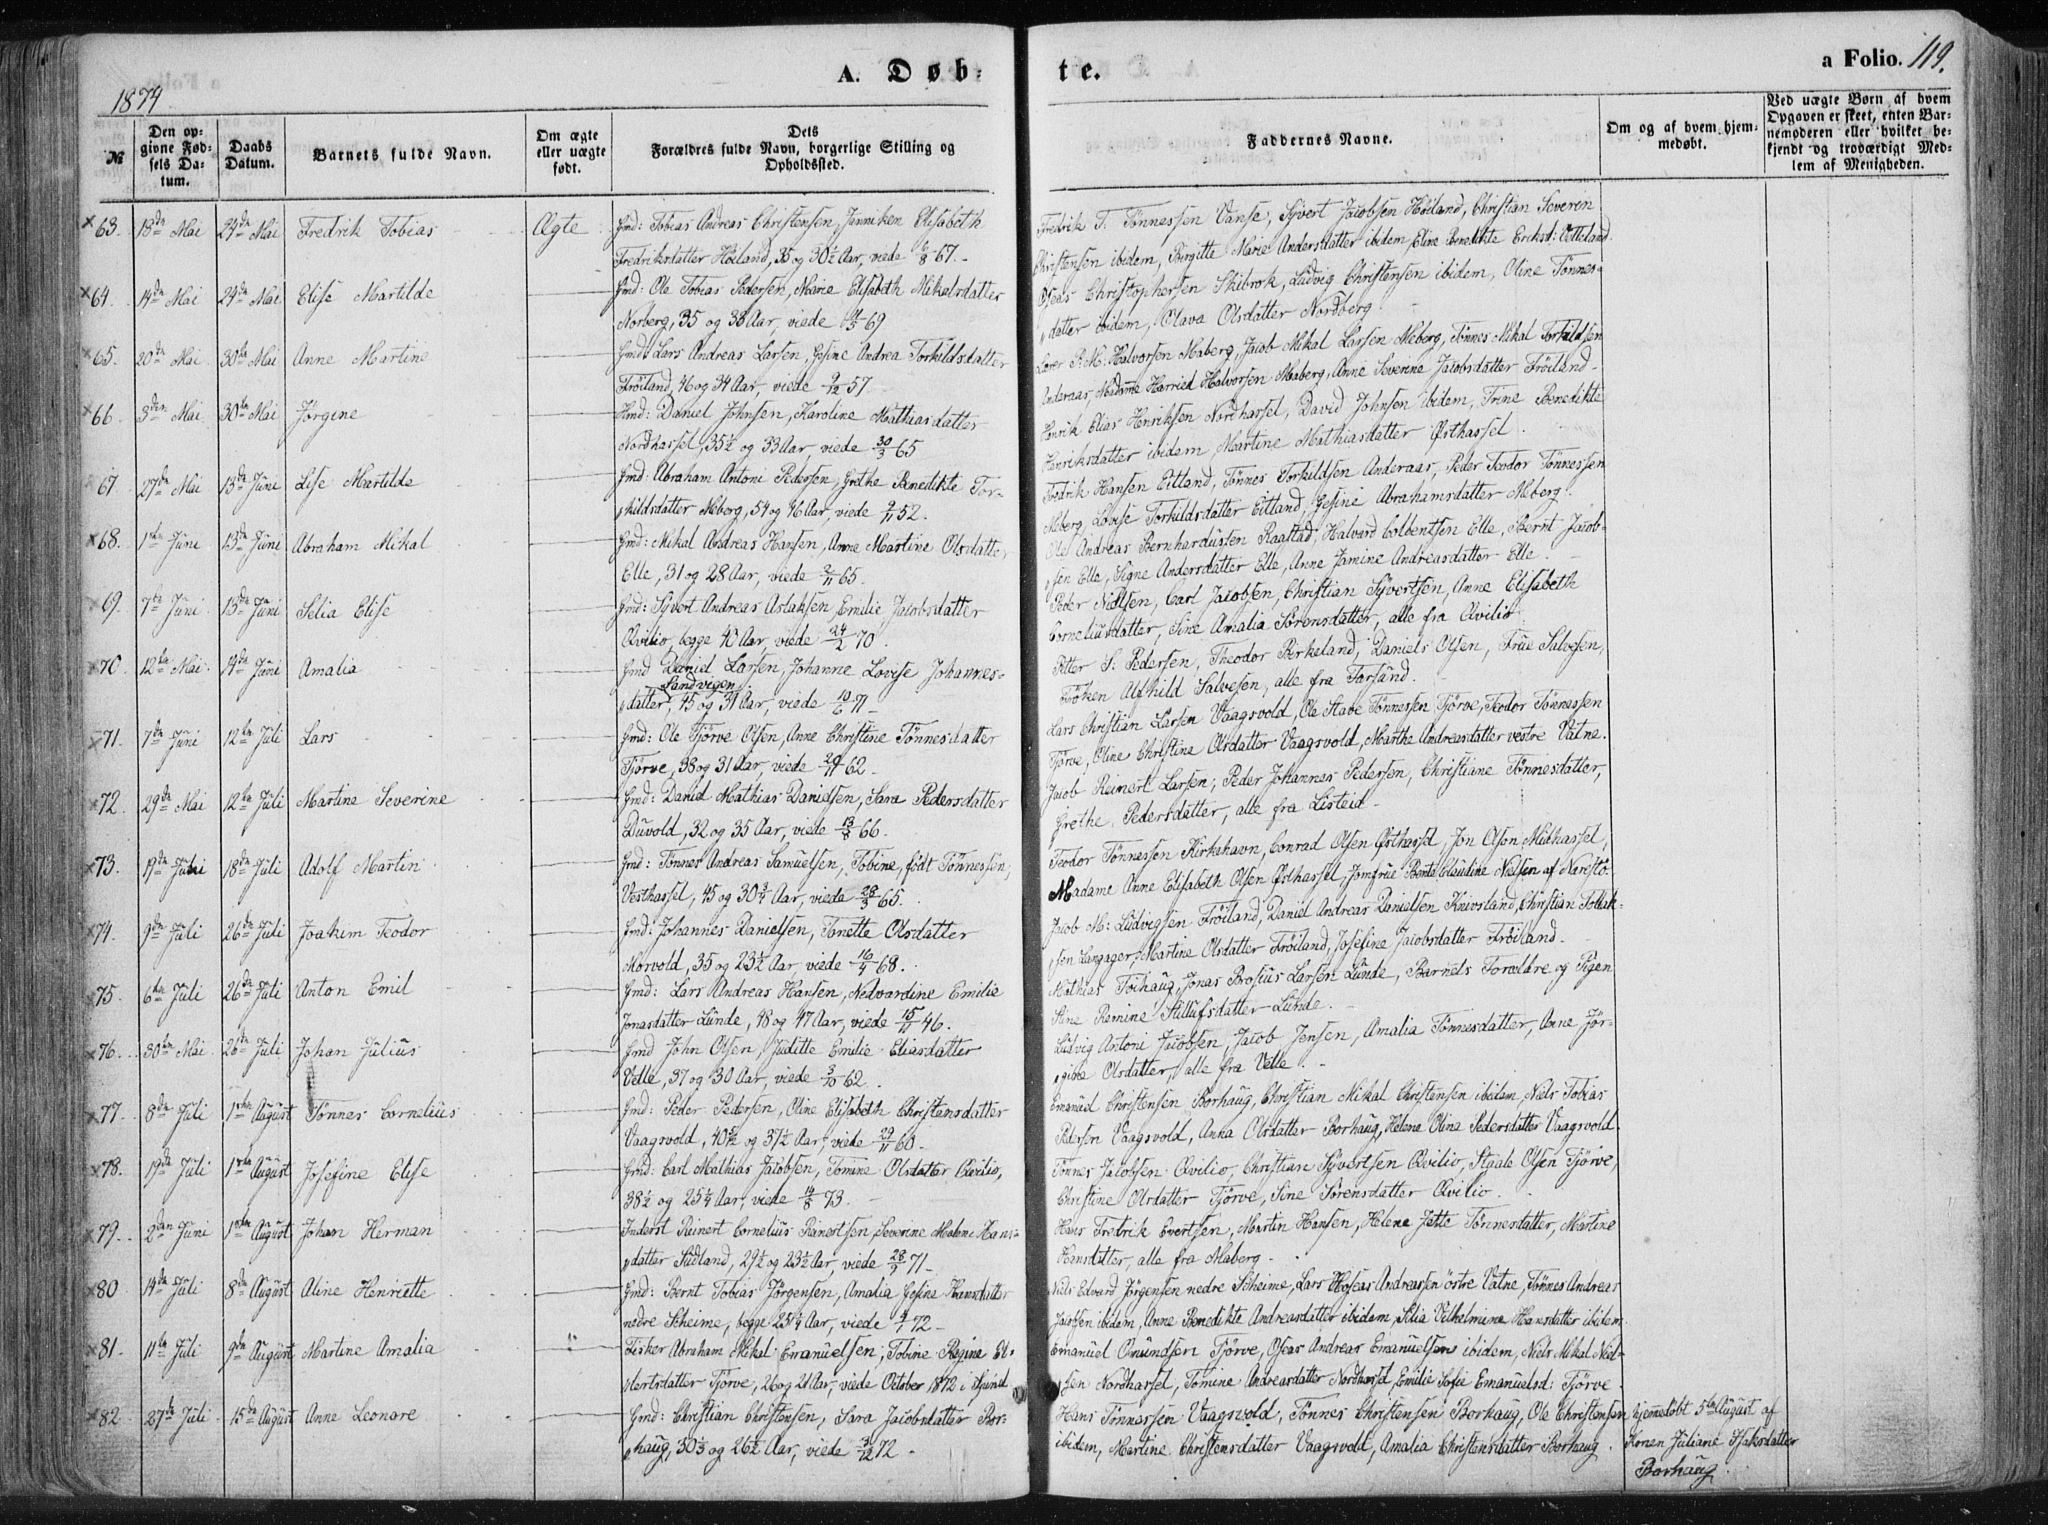 A. Døb: te.
a Folio. 119.
1874
№
Den opgivne Fødsels Datum.
Daabs Datum.
Barnets fulde Navn.
Om ægte eller uægte født.
Dets Forældres fulde Navn, borgerlige Stilling og Opholdssted.
Faddernes Navne.
Om og af hvem hjemmedøbt.
Ved uægte Børn af hvem Opgaven er skeet, enten Barnemøderen eller hvilket bekjendt og troværdigt Medlem af Menigheden.
63. 18de Mai 24de Mai Fredrik Tobias Ægte Gmd: Tobias Andreas Christensen, Janniken Elisabeth
Fredriksdatter Høiland, 35 og 30½ Aar, viede 6/8 67.
Fredrik T. Tönnessen Vanse, Syvert Jacobsen Höiland, Christian Severin
Christensen ibidem, Birgitte Marie Andersdatter ibidem, Eline Benedikte Eriksd: Vetteland.
64. 14de Mai 24de Mai Elise Martilde Gmd: Ole Tobias Pedersen, Marie Elisabeth Mikalsdatter
Norberg, 35 og 38 Aar, viede 69
Oseas Christophersen Skibrok, Ludvig Christensen ibidem, Oline Tönnes-
datter ibidem, Olava Olsdatter Nordberg.
65. 20de Mai 30te Mai Anne Martine Gmd: Lars Andreas Larsen, Gesine Andrea Torkildsdatter
Fröiland, 46 og 34 Aar, viede 9/12 57
Lærer P. M. Halvorsen Maberg, Jacob Mikal Larsen Meberg, Tönnes Mikal Torkildsen
Anderaas, Madame Harried Halvorsen Maberg, Anne Severine Jacobsdatter Fröiland.
66. 3die Mai 30te Mai Jörgine Gmd: Daniel Johnsen, Karoline Mathiasdatter
Nordhassel, 35½ og 33 Aar, viede 30/3 65
Henrik Elias Henriksen Nordhassel, David Johnsen ibidem, Trine Benedikte
Henriksdatter ibidem Martine Mathiasdatter Østhassel.
67. 27de Mai 13de Juni Lise Martilde Gmd: Abraham Antoni Pedersen, Grethe Benedikte Tor-
kildsdatter Meberg, 54 og 46 Aar, viede 9/11 52.
Fredrik Hansen Eitland, Tönnes Torkildsen Anderaas, Peder Teodor Tönnessen
Meberg, Lovise Torkildsdatter Eitland, Gesine Abrahamsdatter Meberg.
68. 1ste Juni 13de Juni Abraham Mikal Gmd: Mikal Andreas Hansen, Anne Martine Olsdatter
Elle, 31 og 28 Aar, viede 2/11 65.
Ole Andreas Bernhardusen Raastad, Halvard Colbentsen Elle, Bernt Jacob-
sen Elle, Signe Andersdatter Elle, Anne Jamine Andreasdatter Elle.
69. 7de Juni 13de Juni Selia Elise Gmd: Syvert Andreas Aslaksen, Emilie Jacobsdatter
Qvilio, begge 40 Aar, viede 24/2 70.
Peder Nielsen, Carl Jacobsen, Christian Syvertsen, Anne Elisabeth
Corneliusdatter, Sine Amalia Sörensdatter, alle fra Qvilio.
70. 12te Mai 14de Juni Amalia Gmd Daniel Larsen, Johanne Lovise Johannes-
datter, Sandvigen 45 og 31 Aar, viede 10/6 71
Pitter S: Pedersen, Theodor Berkeland, Daniels Olsen, Frue Salvesen,
Fröken Alfhild Salvesen, alle fra Farsund.
71. 7de Juni 12te Juli Lars Gmd: Ole Tjörve Olsen, Anne Christine Tönnesdatter
Tjörve, 38 og 31 Aar, viede 62.
Lars Christian Larsen Vaagsvold, Ole Stabe Tönnessen Tjörve, Teodor Tönnessen
Tjörve, Oline Christine Olsdatter Vaagsvold, Marthe Andreasdatter vestre Vatne.
72. 29de Mai 12te Juli Martine Severine Gmd: Daniel Mathias Danielsen, Sara Pedersdatter
Duvold, 32 og 35 Aar, viede 13/8 66.
Jacob Reinert Larsen, Peder Johannes Pedersen, Christiane Tönnesdatter,
Grethe Pedersdatter, alle fra Listeid.
73. 19de Juni 18de Juli Adolf Martin Gmd: Tönnes Andreas Samuelsen, Tobine, født Tönnessen,
Vesthassel, 45 og 30¾ Aar, viede 28/3 65.
Teodor Tönnessen Kirkehavn, Conrad Olsen Østhassel, Jon Olson Midhassel,
Madame Anne Elisabeth Olsen Østhassel, Jomfrue Bente Claudine Nielsen af Narestö.
74. 9de Juli 26de Juli Joakim Teodor Gmd: Johannes Danielsen, Tonette Olsdatter
Morvold, 35 og 23½ Aar, viede 16/4 68.
Jacob M: Ludvigsen Fröiland, Daniel Andreas Danielsen Knivsland, Christian Tollak-
sen Langager, Martine Olsdatter Fröiland, Josefine Jacobsdatter Fröiland.
75. 6te Juli 26de Juli Anton Emil Gmd: Lars Andreas Hansen, Nedvardine Emilie
Jonasdatter Lunde, 48 og 47 Aar, viede 15/11 46.
Mathias Toihaug, Jonas Brosius Larsen Lunde, Barnets Forældre og Pigen
Stine Remine Stillufsdatter Lunde.
76. 30te Mai 26de Juli Johan Julius Gmd John Olsen, Juditte Emilie Eliasdatter
Velle, 37 og 30 Aar, viede 3/10 62.
Ludvig Antoni Jacobsen, Jacob Jensen, Amalia Tönnesdatter, Anne Jör-
gine Olsdatter, alle fra Velle.
77. 8de Juli 1ste August Tönnes Cornelius Gmd: Peder Pedersen, Oline Elisabeth Christensdatter
Vaagsvold, 40¾ og 37½ Aar, viede 29/11 60.
Emanuel Christensen Borhaug, Christian Mikal Christensen ibidem, Niels Tobias
Pedersen Vaagsvold, Anna Olsdatter Borhaug, Helene Oline Pedersdatter Vaagsvold.
78. 19de Juli 1ste August Josefine Elise Gmd: Carl Mathias Jacobsen, Tomine Olsdatter Qvilio,
38½ og 25¼ Aar, viede 14/8 73.
Tönnes Jacobsen Qvilio, Christian Syvertsen Qvilio, Staale Olsen Tjörve,
Christine Olsdatter Tjörve, Sine Sörensdatter Qvilio.
79. 2den Juni 1ste August Johan Herman Inderst Reinert Cornelius Reinertsen, Severine Malene Hans-
datter Sudland, 29½ og 23½ Aar, viede 71
Hans Fredrik Evertsen, Martin Hansen, Helene Jette Tönnesdatter, Martine
Hansdatter, alle fra Maberg.
80. 14de Juli 8de August Aline Henriette Gmd: Bernt Tobias Jörgensen, Amalia Gesine Hansdatter
nedre Scheime, begge 25¼ Aar, viede 72
Niels Edvard Jörgensen nedre Scheime, Lars Hoseas Andreassen östre Vatne, Tönnes Andreas
Jacobsen ibidem, Anne Benedikte Andreasdatter ibidem, Selia Vilhelmine Hansdatter ibidem.
81. 11te Juli 9de August Martine Amalia Fisker Abraham Mikal Emanuelsen, Tobine Regine El-
lertsdatter Tjörve, 26 og 21 Aar, viede October 1872 i Spind
Emanuel Omundsen Tjörve, Oseas Andreas Emanuelsen ibidem, Niels Mikal Niel-
sen Nordhassel, Tomine Andreasdatter Nordhassel, Emilie Sofie Emanuelsd: Tjörve.
82. 27de Juli 15de August Anne Leonare Gmd: Christian Christensen, Sara Jacobsdatter Bor-
haug, 30⅓ og 26½ Aar, viede 3/12 72
Hans Tönnessen Vaagsvold, Tönnes Christensen Borhaug, Ole Christensen
ibidem, Martine Christensdatter Vaagsvold, Amalia Christensdatter Borhaug.
hjemmedöbt 5te August af
Konen Juliane Isaksdatter
Borhaug.